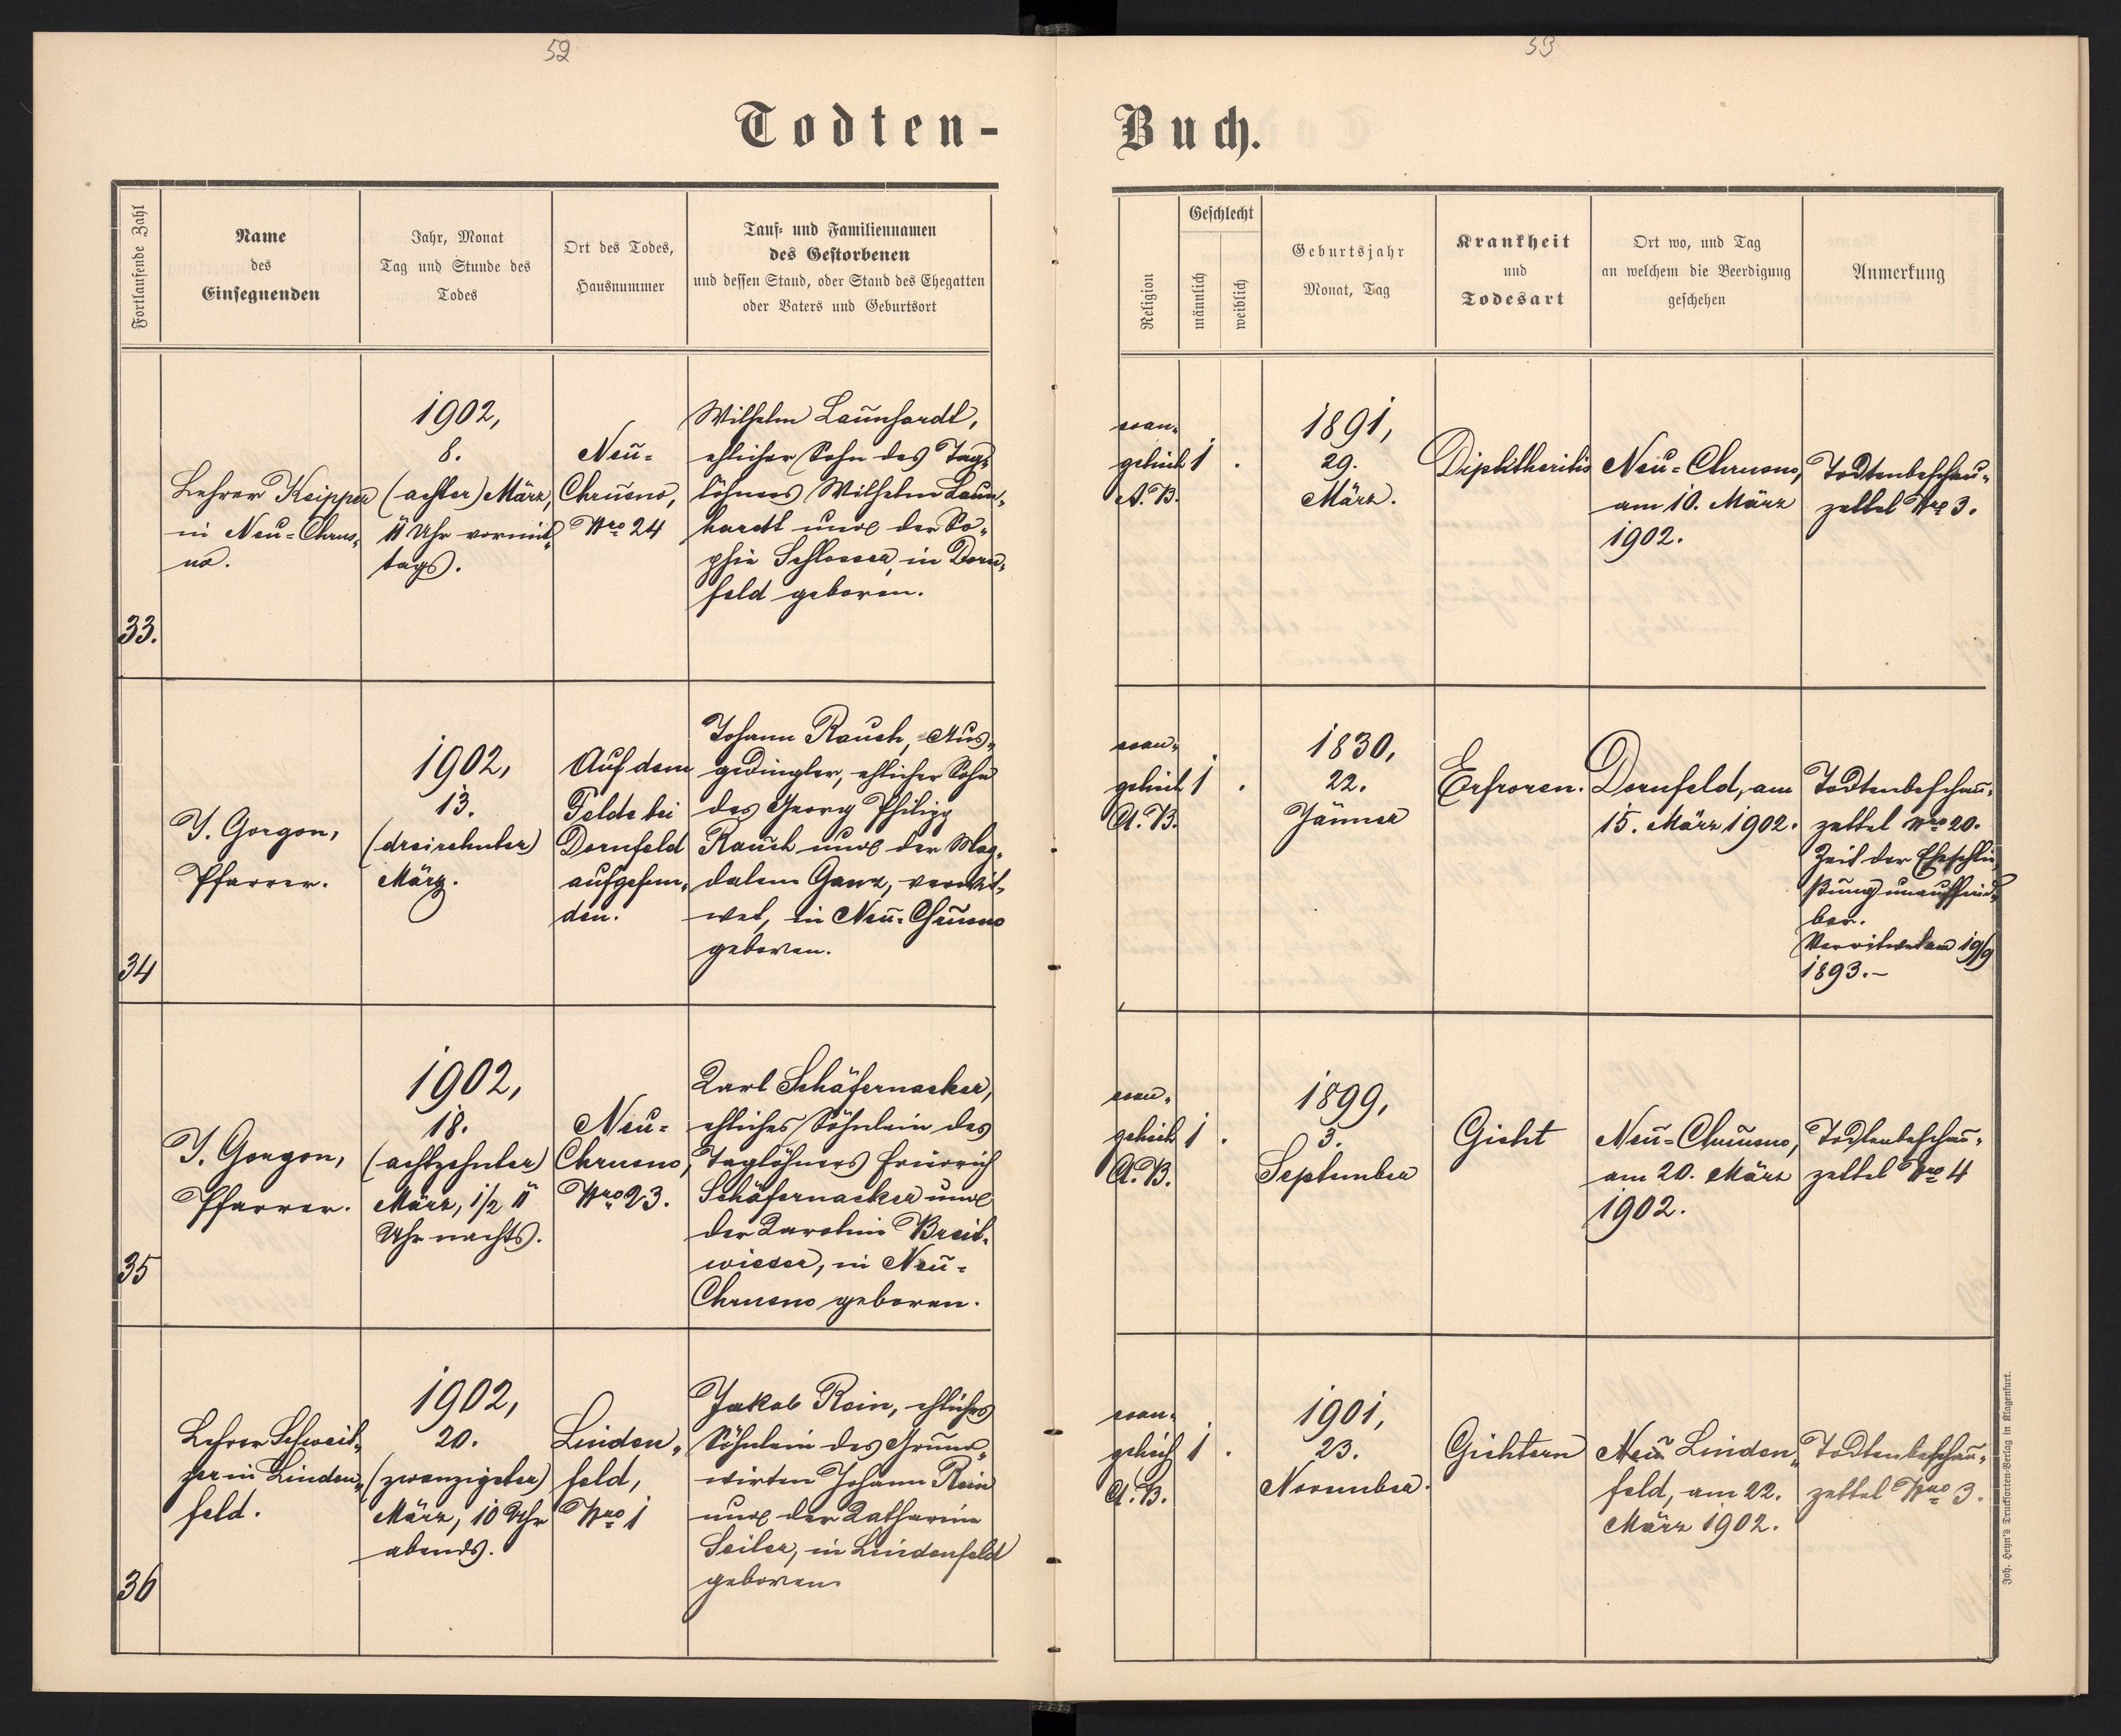 52
53
Todten-
Buch.
Fortlaufende Zahl
Name
des
Einsegnenden
Jahr, Monat
Tag und Stunde des
Todes
Ort des Todes,
Hausnummer
Tauf- und Familiennamen
des Gestorbenen
und dessen Stand, oder Stand des Ehegatten
oder Vaters und Geburtsort
Religion
Geschlecht
männlich
weiblich
Geburtsjahr
Monat, Tag
Krankheit
und
Todesart
Ort wo, und Tag
an welchem die Beerdigung
geschehen
Anmerkung
33.
Lehrer Keipper
in Neu-Chrus-
no.
1902,
8.
(achter) März,
11 Uhr vormit-
tags.
Neu-
Chrusno,
Nro 24
Wilhelm Launhardt,
ehlicher Sohn des Tag-
löhners Wilhelm Laun-
hardt und der So-
phie Schlosser, in Dorn-
feld geboren.
evan-
gelisch
A. B.
1
.
1891,
29.
März.
Diphtheritis
Neu-Chrusno,
am 10. März
1902.
Todtenbeschau-
zettel Nro 3.
34
J. Gorgon,
Pfarrer.
1902,
13.
(dreizehnter)
März.
Auf dem
Felde bei
Dornfeld
aufgefun-
den.
Johann Rauch, Aus-
gedingler, ehlicher Sohn
des Georg Philipp
Rauch und der Mag-
dalena Ganz, verwit-
wet, in Neu-Chrusno
geboren.
evan-
gelisch
A. B.
1
.
1830,
22.
Jänner
Erfroren.
Dornfeld, am
15. März 1902.
Todtenbeschau-
zettel Nro 20.
Zeit der Eheschlie-
ßung unauffind-
bar.
Verwitwet am 19/9
1893.-
35
J. Gorgon,
Pfarrer.
1902,
18.
(achtzehnter)
März, 1/2 11
Uhr nachts.
Neu-
Chrusno,
Nro 23.
Karl Schäfernacker,
ehliches Söhnlein des
Taglöhners Friedrich
Schäfernacker und
der Karolina Breit-
wieser, in Neu-
Chrusno geboren.
evan-
gelisch
A. B.
1
.
1899,
3.
September
Gicht
Neu-Chrusno,
am 20. März
1902.
Todtenbeschau-
zettel Nro 4
36
Lehrer Schweit-
zer in Linden-
feld.
1902,
20.
(zwanzigster)
März, 10 Uhr
abends.
Linden-
feld,
Nro 1
Jakob Rein, ehliches
Söhnlein des Grund-
wirten Johann Rein
und der Katharina
Seiler, in Lindenfeld
geboren.
evan-
gelisch
A. B.
1
.
1901,
23.
November.
Gichtern
Neu Linden-
feld, am 22.
März 1902.
Todtenbeschau-
zettel Nro 3.
Joh. Heyn's Drucksorten-Verlag in Klagenfurt.